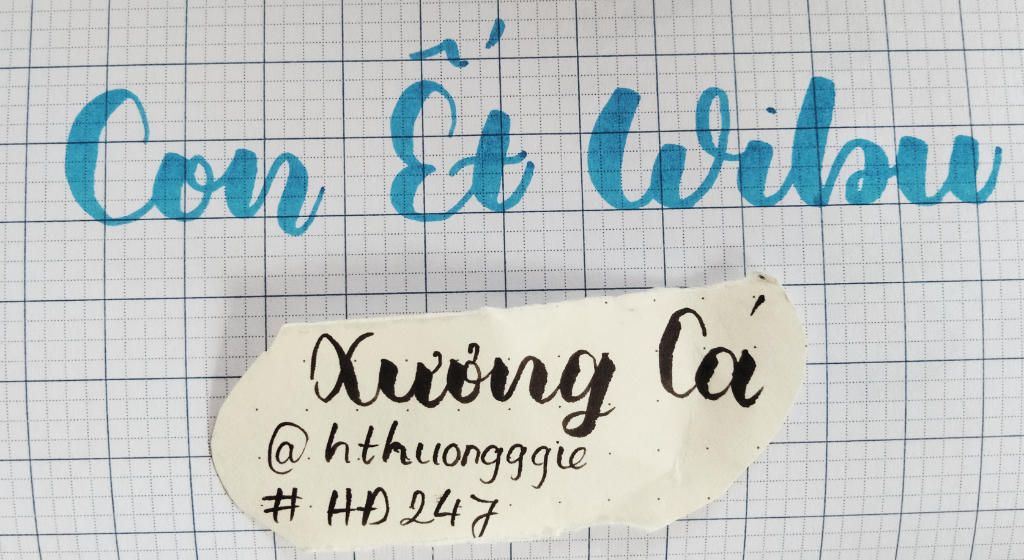 Con Ết Wibu
Xương Cá
@hthuongggie
#HĐ247